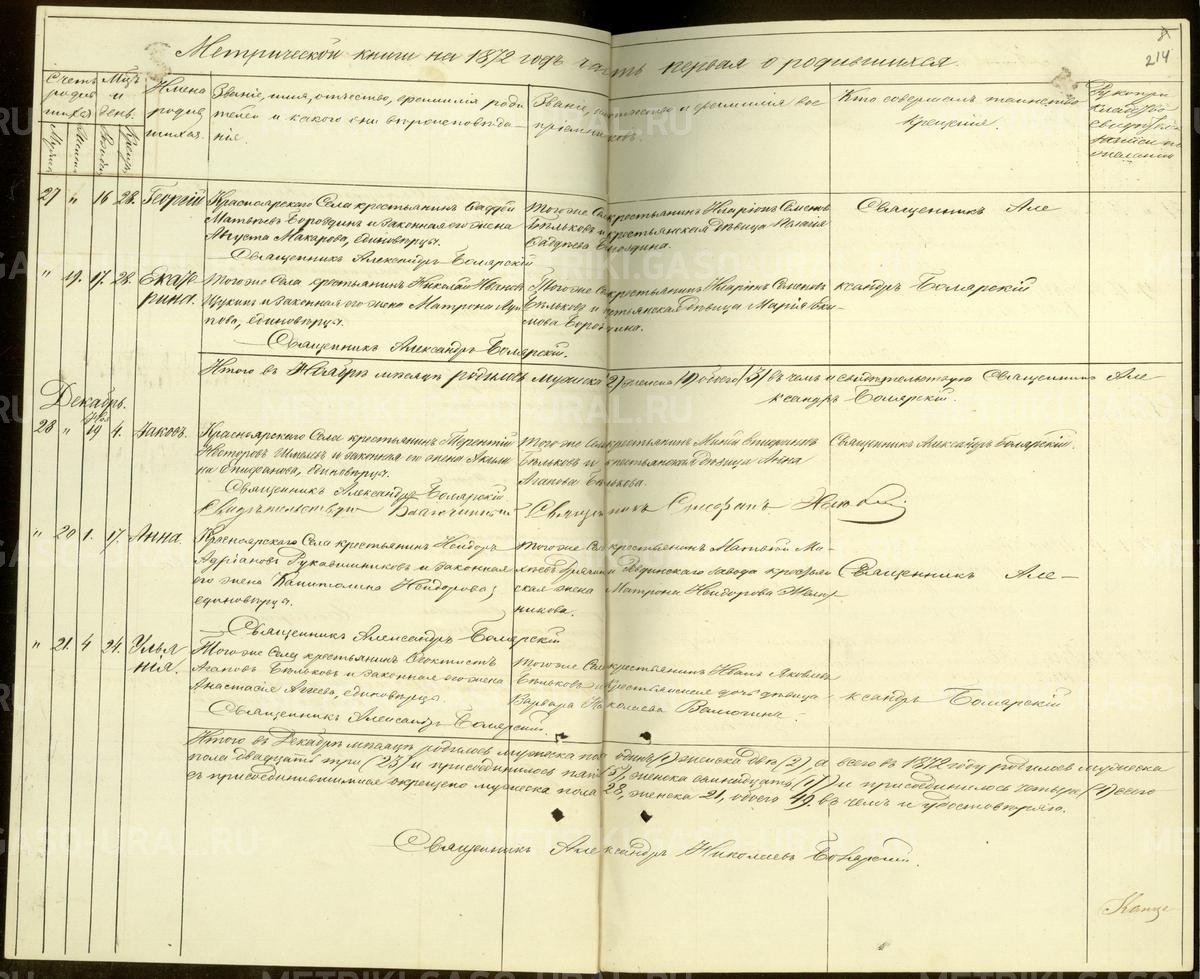 8
214
Метрической книги на 1872 годъ часть первая о родившихся.
Счетъ родив шихся
Мцъ и день
Мужес.
Женск.
Рожден.
Крещен.
Имена родив шихся.
Званіе, имя, отчество, фамилія роди
телей и какого они вѣроисповѣда-
нія.
Званіе, имя, отчество и фамилія вос
пріемни ковъ.
Кто совершалъ таинство
крещенія.
Рукопри
кладство
свидѣтел.
записи по
желанію
27 " 16 28. Георгій
Красноярскаго Села крестьянинъ Фаддей
Матвѣевъ Бороздинъ и законная его жена
Августа Макарова, единовѣрцы.
Священникъ Александръ Боярскій
Того же Села крестьянинъ Иларіонъ Семеновъ
Бѣльковъ и крестьянская дѣвица Пелагія
Фадѣева Бороздина.
Священникъ Але
" 19. 17. 28. Екате
рина.
Того же Села крестьянинъ Николай Ивановъ
Щукинъ и законная его жена Матрона
единовѣрцы.
Священникъ Александръ Боярскій.
Того же Села крестьянинъ Иларіонъ Семеновъ
Бѣльковъ и крестьянская дѣвица Марія
ксандръ Боярскій
Итого въ Ноябрѣ мѣсяцѣ родилось мужска (2) женска (1) обоего (3) въ чемъ и свидѣтельствую Священникъ Але
ксандръ Боярскій.
Декабрь.
28 " 19 4. Іаковъ.
Красноярскаго Села крестьянинъ Терентій
и законная его жена Акили
на Епифанова, единовѣрцы.
Священникъ Александръ Боярскій.
Того же Села крестьянинъ
Бѣльковъ и крестьянская дѣвица Анна
Агапова Бѣлькова.
Священникъ Александръ Боярскій.
Свидѣтельствую Благочинный Священникъ Стефанъ
" 20 1. 17. Анна
Красноярскаго Села крестьянинъ Исидоръ
Адріановъ Рукавишниковъ и законная
его жена Капитолина Исидорова,
единовѣрцы.
Священникъ Александръ Боярскій
Того же Села крестьянинъ Матвѣй Ма-
завода крестьян
ская жена Матрона Исидорова
никова.
Священникъ Але-
" 21. 4 24. Улья
нія.
Того же Села крестьянинъ Феоктистъ
Агаповъ Бѣльковъ и законная его жена
Анастасія Агѣева, единовѣрцы.
Священникъ Александръ Боярскій.
Того же Села крестьянинъ Иванъ Яковлевъ
Бѣльковъ и крестьянская дочь дѣвица
Варвара Николаева
ксандръ Боярскій
Итого въ Декабрѣ мѣсяцѣ родилось мужеска пола одинъ (1) женска два (2), а всего въ 1872 году родилось мужеска
пола двадцать три (23) и присоединилось пять (5), женска семнадцать (17) и присоединилось четыре (4) всего
съ присоединившимися окрещено мужеска пола 28, женска 21, обоего 49. въ чемъ и удостовѣряю.
Священникъ Александръ Николаевъ Боярскій.
Конецъ
METRIKI.GASO-URAL.RU